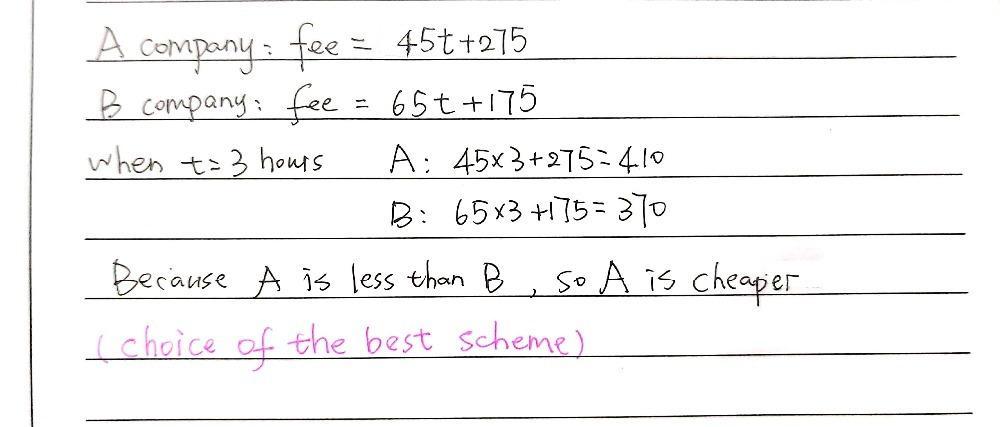 A company: fee = 45t+275
B company: fee = 65t+175
when t=3 hours A: 45×3+275=410
B: 65×3+175=370
Because A is less than B, so A is cheaper
(choice of the best scheme)